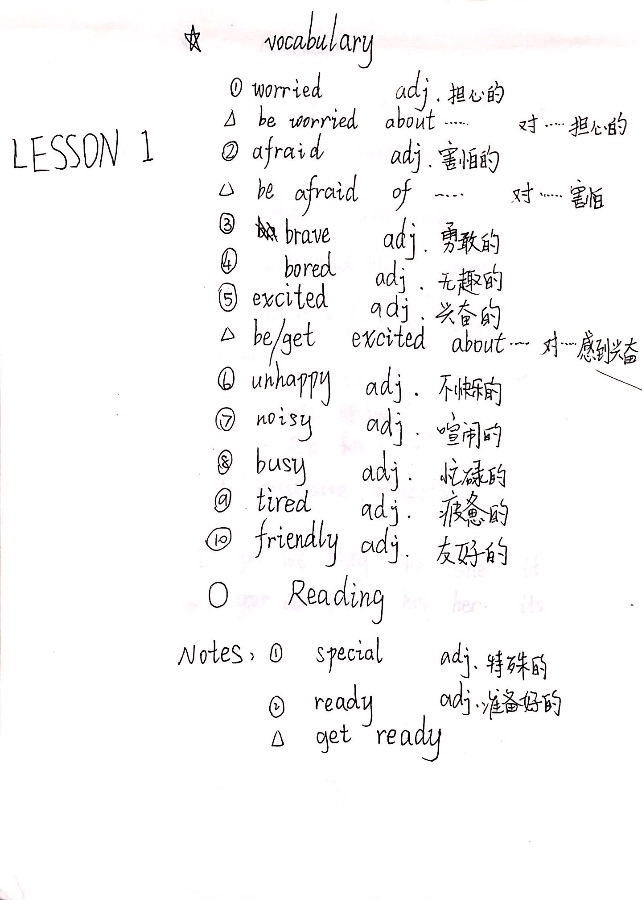 ☆ vocabulary
LESSON 1
① worried adj. 担心的
△ be worried about ······ 对 ······ 担心的
② afraid adj. 害怕的
△ be afraid of ······ 对 ······ 害怕
③ brave adj. 勇敢的
④ bored adj. 无趣的
⑤ excited adj. 兴奋的
△ be/get excited about ······ 对 ······ 感到兴奋
⑥ unhappy adj. 不快乐的
⑦ noisy adj. 喧闹的
⑧ busy adj. 忙碌的
⑨ tired adj. 疲惫的
⑩ friendly adj. 友好的
○ Reading
Notes: ① special adj. 特殊的
② ready adj. 准备好的
△ get ready